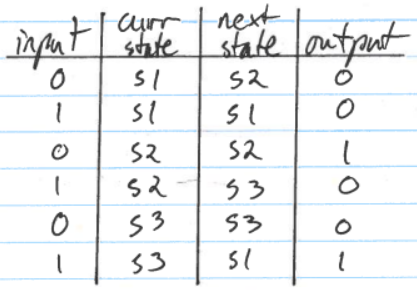 input curr state next state output
0 s1 s2 0
1 s1 s1 0
0 s2 s2 1
1 s2 s3 0
0 s3 s3 0
1 s3 s1 1